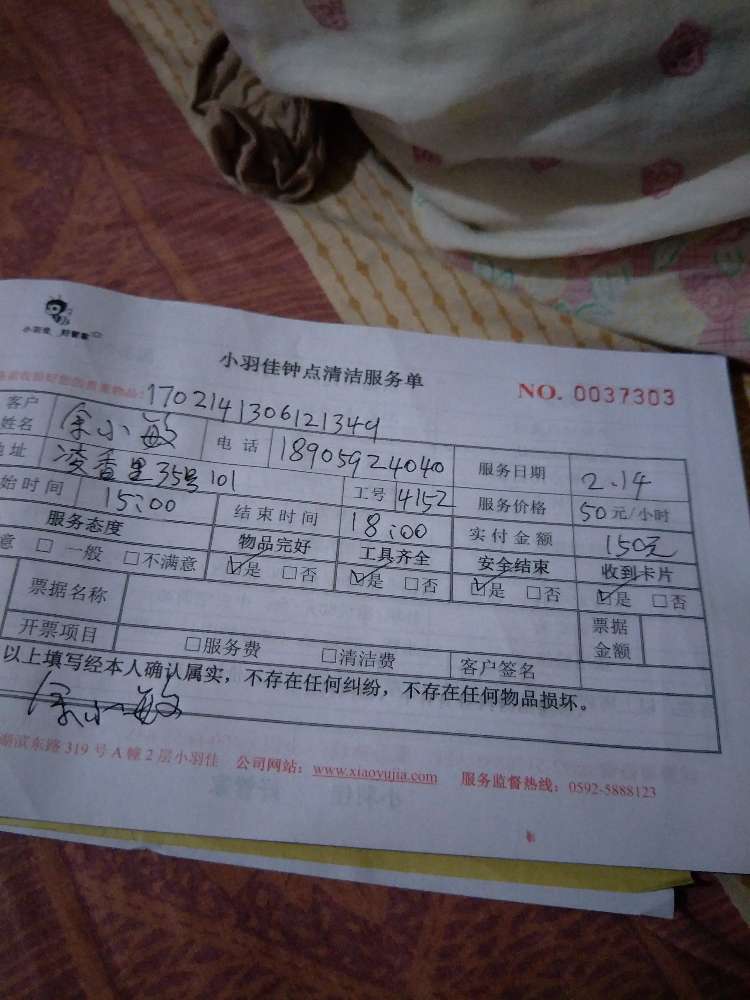 小羽佳 好管家
小羽佳钟点清洁服务单
NO. 0037303
1702141306121349
客户姓名 余小敏 电话 18905924040 服务日期 2.14
地址 凌香里35号101 工号 4152 服务价格 50元/小时
始时间 15:00 结束时间 18:00 实付金额 150元
服务态度 物品完好 工具齐全 安全结束 收到卡片
意 □一般 □不满意 ☑是 □否 ☑是 □否 ☑是 □否 ☑是 □否
票据名称 票据金额
开票项目 □服务费 □清洁费 客户签名
以上填写经本人确认属实，不存在任何纠纷，不存在任何物品损坏。
余小敏
湖滨东路319号A幢2层小羽佳 公司网站：www.xiaoyujia.com 服务监督热线：0592-5888123